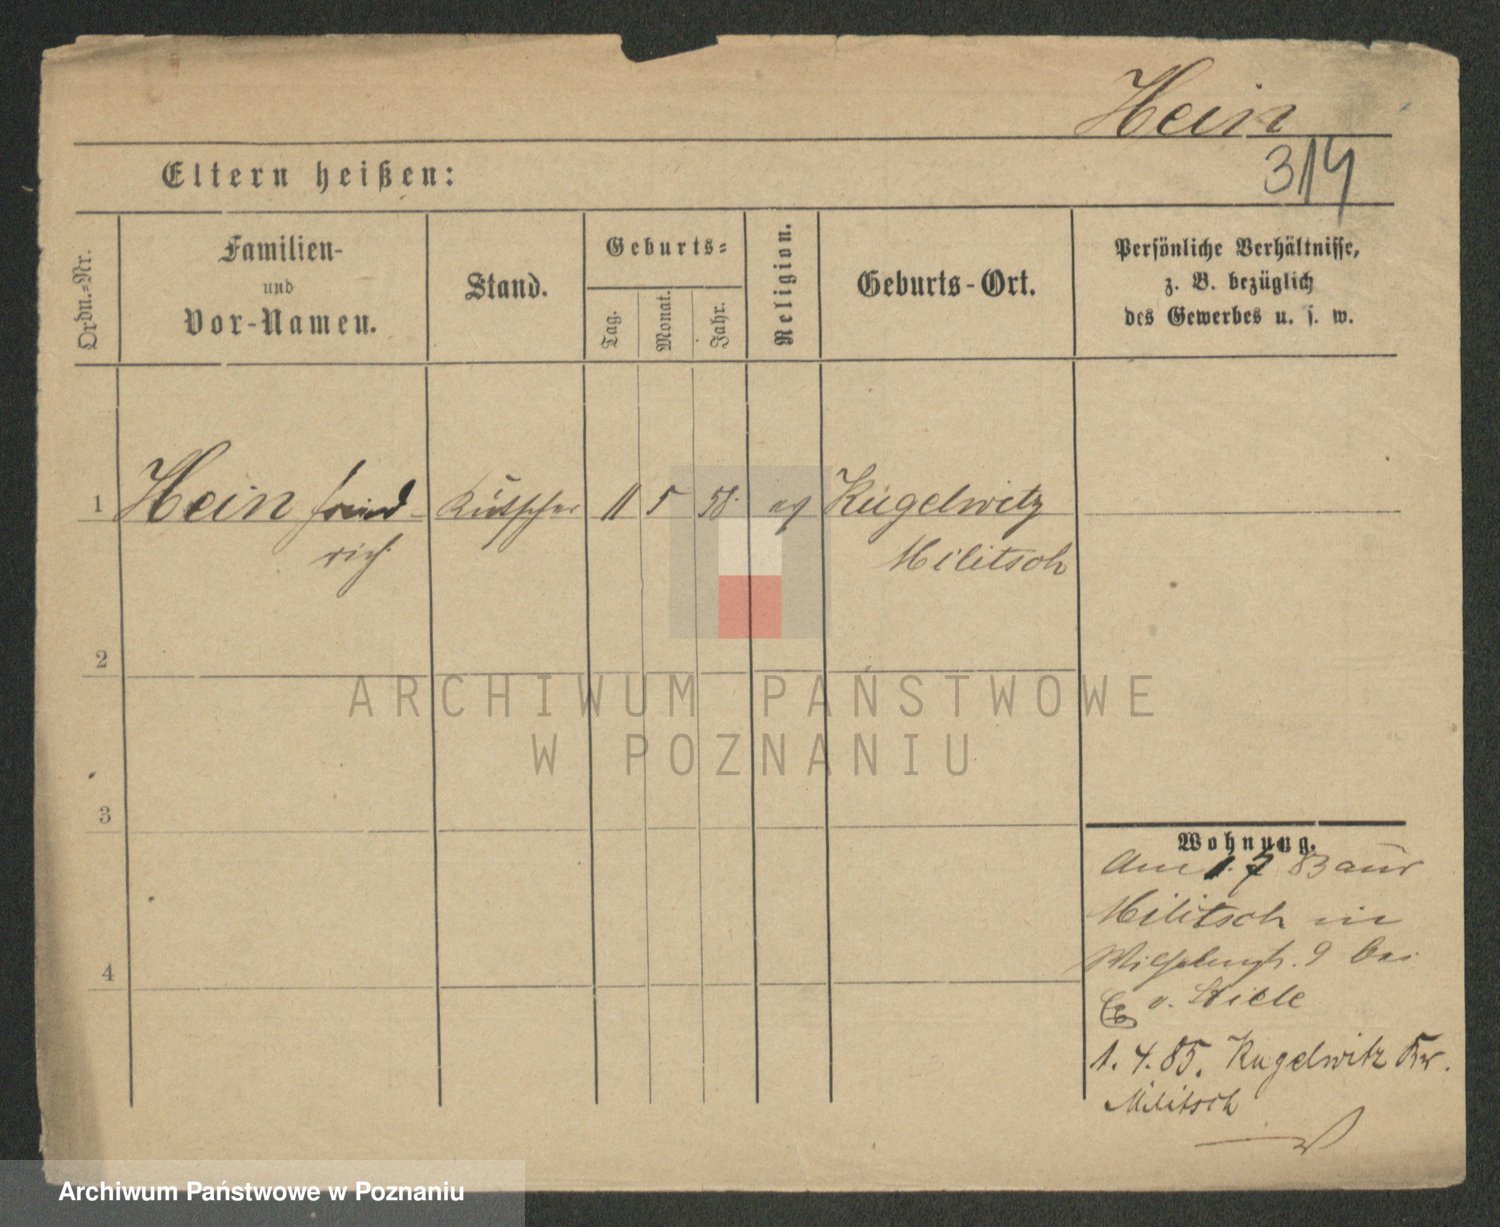 Hein
314
Eltern heißen:
Ordn.-Nr.
Familien-
und
Vor-Namen.
Stand.
Geburts-
Tag.
Monat.
Jahr.
Religion.
Geburts-Ort.
Persönliche Verhältnisse,
z. B. bezüglich
des Gewerbes u. s. w.
1 Hein Fried- Kutscher 11 5 58. ev Kugelwitz
rich Militsch
2
ARCHIWUM PAŃSTWOWE
W POZNANIU
3
4
Wohnung.
Am 1. 7 83 aus
Militsch in
Wilhelmstr. 9 bei
E v. Stiele
1. 4. 85. Kugelwitz Kr.
Militsch
Archiwum Państwowe w Poznaniu